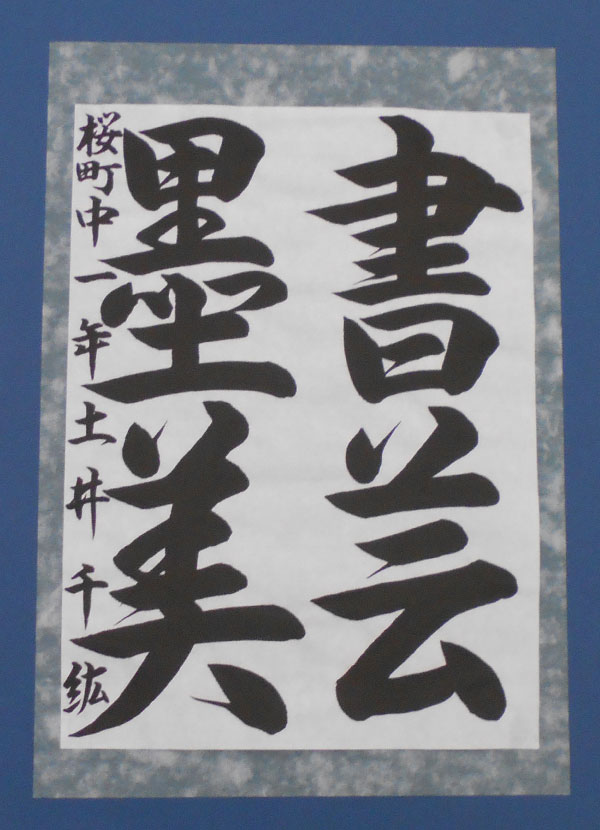 書芸
墨美
桜町中一年土井千紘